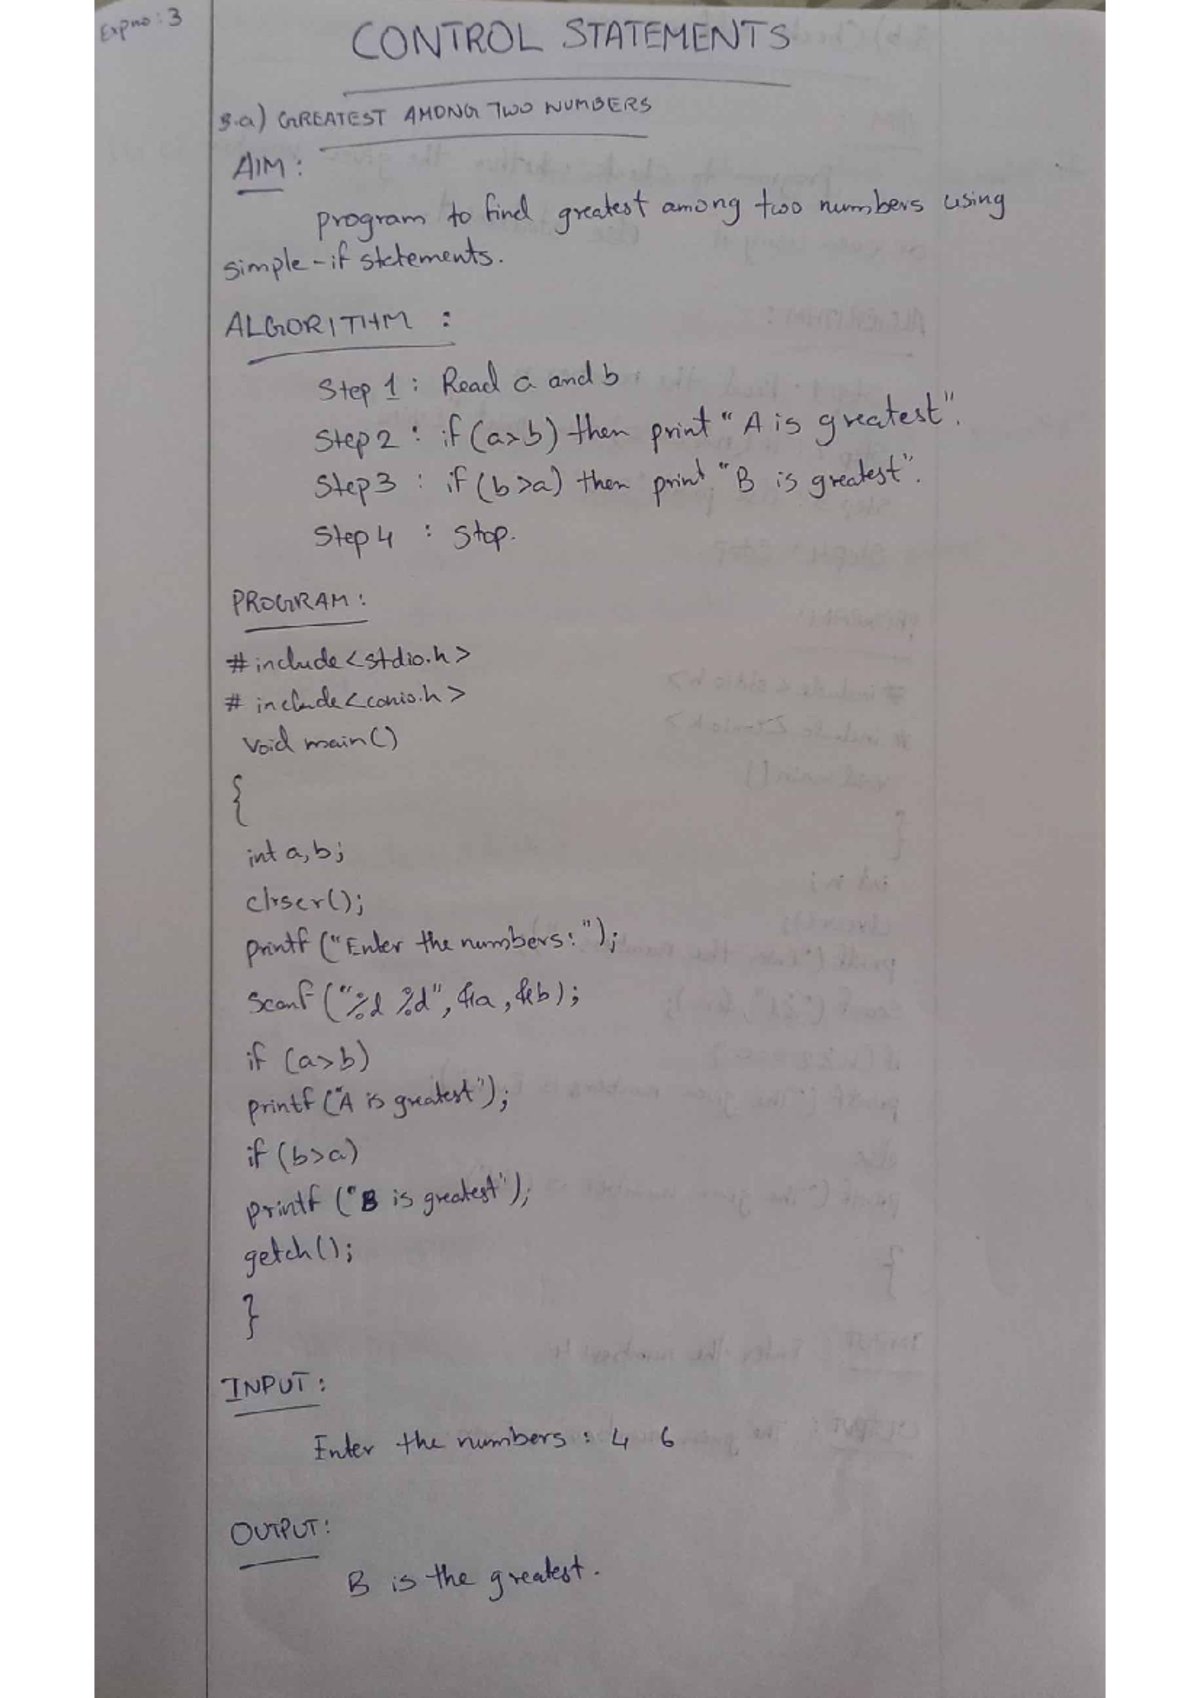 Expno: 3
CONTROL STATEMENTS
3.a) GREATEST AMONG TWO NUMBERS
AIM:
program to find greatest among two numbers using
simple-if statements.
ALGORITHM :
Step 1 : Read a and b
Step 2 : if (a>b) then print "A is greatest".
Step 3 : if (b>a) then print "B is greatest".
Step 4 : Stop.
PROGRAM:
#include<stdio.h>
# include<conio.h>
Void main()
{
int a,b;
clrscr();
printf ("Enter the numbers:");
Scanf ("%d %d", &a, &b);
if (a>b)
printf ("A is greatest");
if (b>a)
printf ("B is greatest");
getch();
}
INPUT:
Enter the numbers : 4 6
OUTPUT:
B is the greatest.